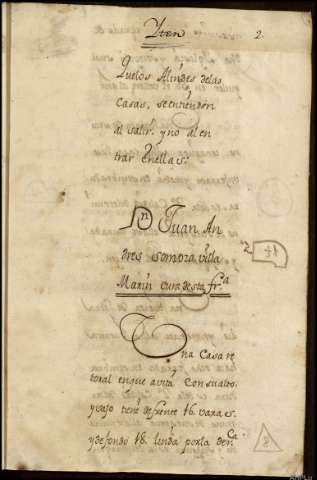 Yten
2
Quelos Alindes delas
Casas, se entienden
al salir, y no al en
trar Enellas:
Dn Juan An
dres somoza, villa
Marin cura desta frª
Una Casa re
toral enque avita, Con su alto,
y vajo tiene defrente 16. varas,
y de fondo 18. linda por la derCª